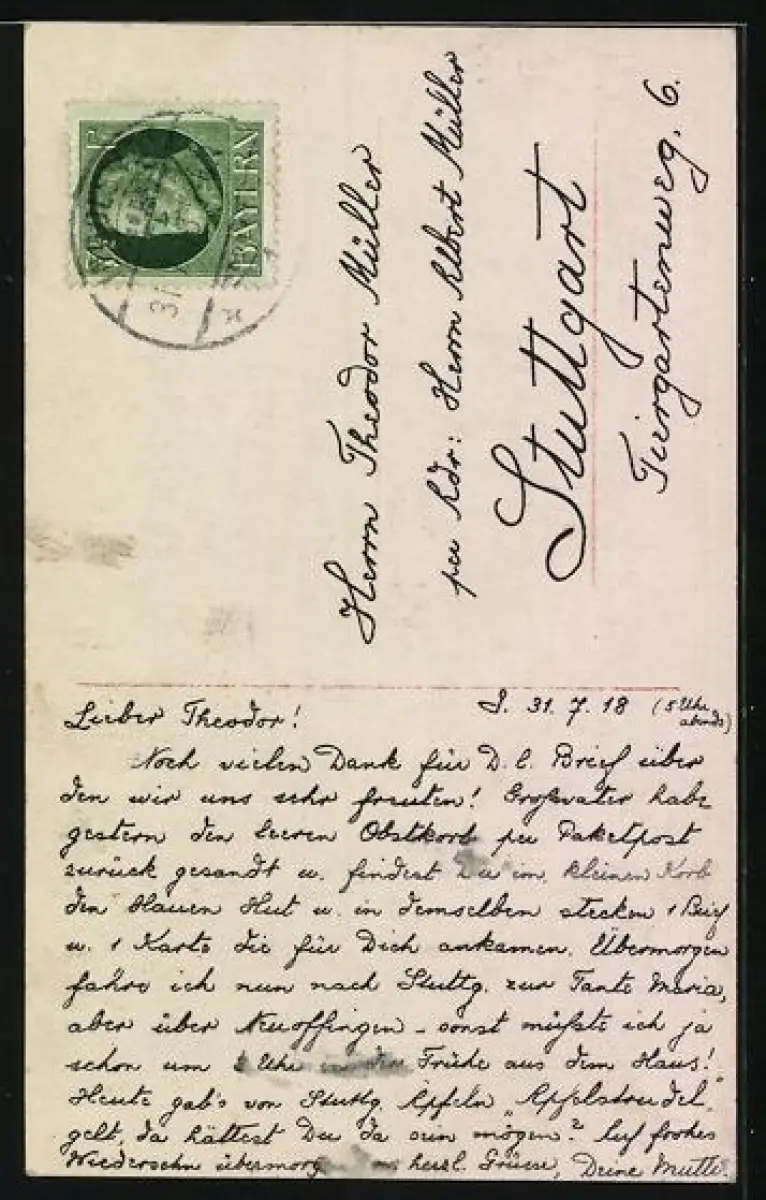 BAYERN
Herrn Theodor Müller
per Adr: Herrn Albert Müller
Stuttgart
Tiergartenweg. 6.
31. 7. 18 (5 Uhr
abends)
Lieber Theodor!
Noch vielen Dank für D. l. Brief über
den wir uns sehr freuten! Großvater habe
gestern den leeren Obstkorb per Paketpost
zurück gesandt u. findest Du im kleinen Korb
den blauen Hut u. in demselben stecken 1 Brief
u. 1 Karte die für Dich ankamen. Übermorgen
fahre ich nun nach Stuttg. zur Tante Maria,
aber über Neuoffingen – sonst müßte ich ja
schon um Uhr in der Frühe aus dem Haus!
Heute gab's von Stuttg. Äpfeln „Apfelstrudel"
gelt, da hättest Du da sein mögen? Auf frohes
Wiedersehn übermorg herzl. Grüsse, Deine Mutter